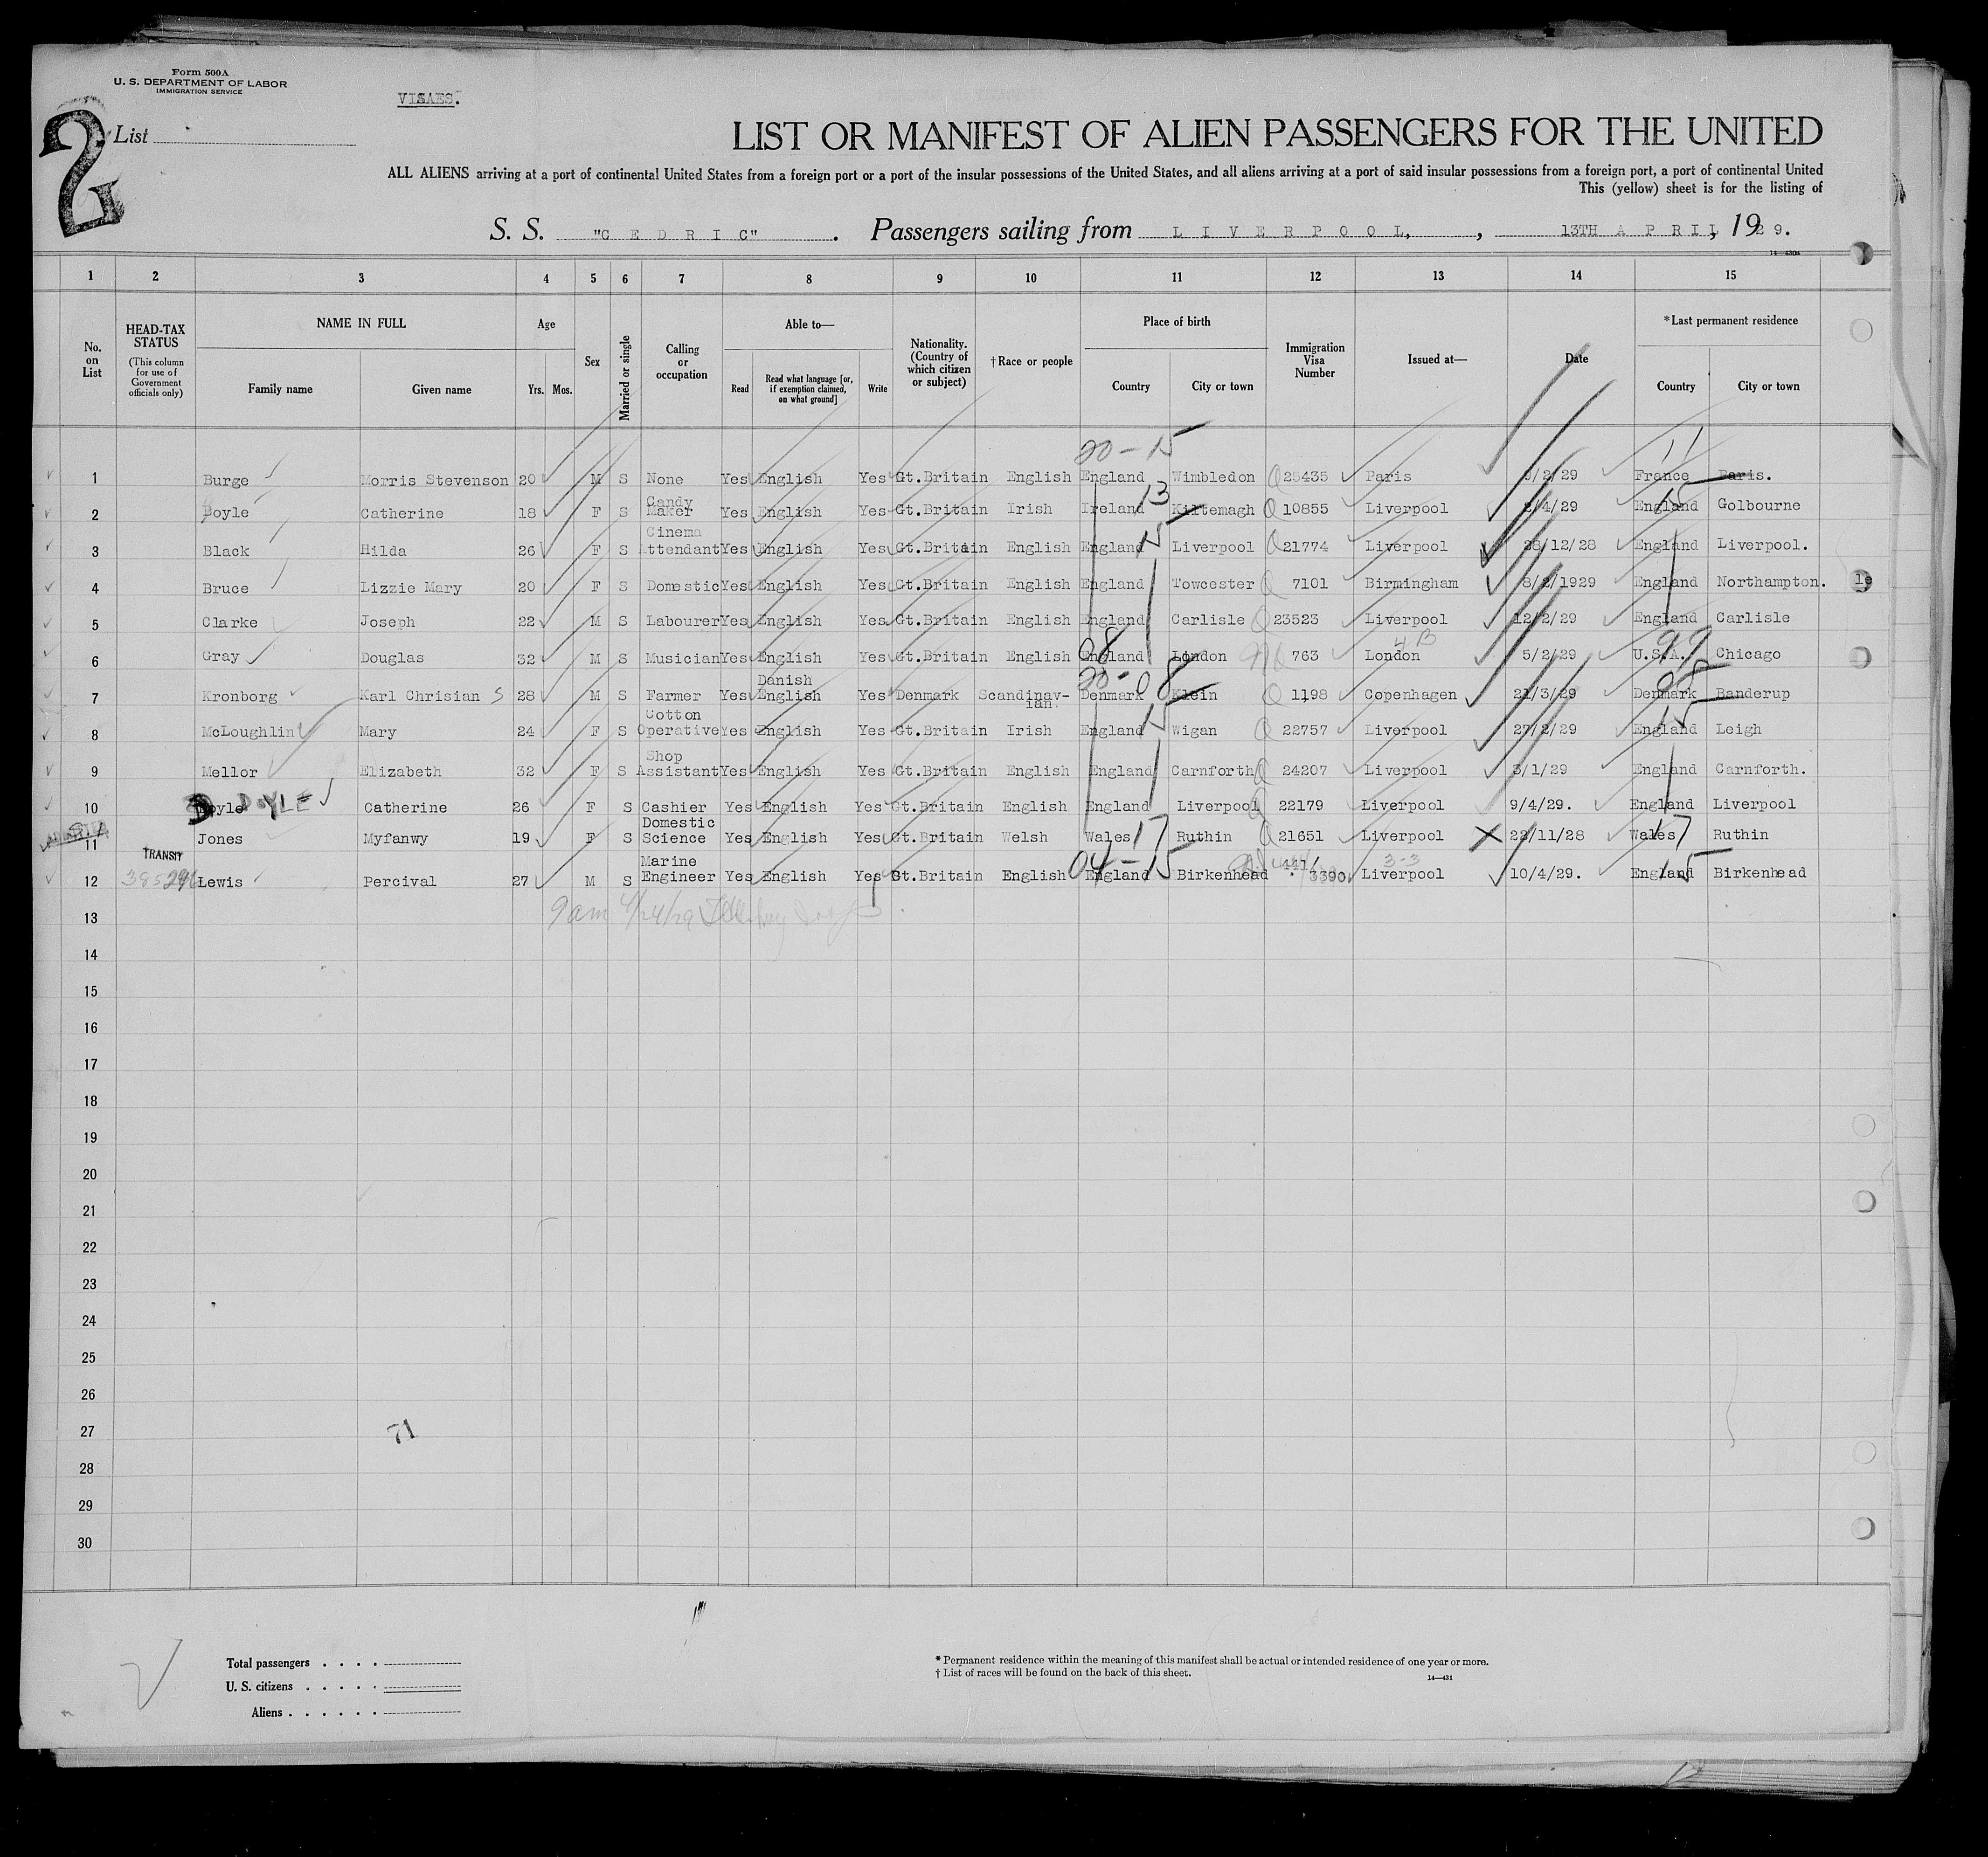 Form 500A
U. S. DEPARTMENT OF LABOR
IMMIGRATION SERVICE
VISAES.
2
List
LIST OR MANIFEST OF ALIEN PASSENGERS FOR THE UNITED
ALL ALIENS arriving at a port of continental United States from a foreign port or a port of the insular possessions of the United States, and all aliens arriving at a port of said insular possessions from a foreign port, a port of continental United
This (yellow) sheet is for the listing of
S. S. "C E D R I C" . Passengers sailing from L I V E R P O O L, , 13TH A P R I L, 1929.
14—430a
1 2 3 4 5 6 7 8 9 10 11 12 13 14 15
No. on List
HEAD-TAX STATUS
(This column for use of Government officials only)
NAME IN FULL
Family name Given name
Age
Yrs. Mos.
Sex
Married or single
Calling or occupation
Able to—
Read Read what language [or, if exemption claimed, on what ground] Write
Nationality. (Country of which citizen or subject)
†Race or people
Place of birth
Country City or town
Immigration Visa Number
Issued at—
Date
*Last permanent residence
Country City or town
20-15 11
1 Burge Morris Stevenson 20 M S None Yes English Yes Gt.Britain English England Wimbledon Q 25435 Paris /2/29 France Paris.
2 Boyle Catherine 18 F S Candy Maker Yes English Yes Gt.Britain Irish Ireland 13 Kiltemagh Q 10855 Liverpool /4/29 England 15 Golbourne
3 Black Hilda 26 F S Cinema Attendant Yes English Yes Gt.Britain English England 15 Liverpool Q 21774 Liverpool 28/12/28 England Liverpool.
4 Bruce Lizzie Mary 20 F S Domestic Yes English Yes Gt.Britain English England Towcester Q 7101 Birmingham 8/2/1929 England Northampton. le
5 Clarke Joseph 22 M S Labourer Yes English Yes Gt.Britain English England Carlisle Q 23523 Liverpool 12/2/29 England Carlisle
6 Gray Douglas 32 M S Musician Yes English Yes Gt.Britain English England London 763 London 4B 5/2/29 U.S.A. 99 Chicago
7 Kronborg Karl Chrisian S 28 M S Farmer Yes Danish English Yes Denmark Scandinav-ian. 20-08 Denmark Klein Q 1198 Copenhagen 21/3/29 Denmark 08 Banderup
8 McLoughlin Mary 24 F S Cotton Operative Yes English Yes Gt.Britain Irish England 15 Wigan Q 22757 Liverpool 27/2/29 England 15 Leigh
9 Mellor Elizabeth 32 F S Shop Assistant Yes English Yes Gt.Britain English England Carnforth Q 24207 Liverpool 3/1/29 England Carnforth.
10 Doyle DOYLE Catherine 26 F S Cashier Yes English Yes Gt.Britain English England Liverpool Q 22179 Liverpool 9/4/29. England Liverpool
11 Jones Myfanwy 19 F S Domestic Science Yes English Yes Gt.Britain Welsh Wales 17 Ruthin Q 21651 Liverpool 22/11/28 Wales 17 Ruthin
TRANSIT
12 Lewis Percival 27 M S Marine Engineer Yes English Yes Gt.Britain English 04-15 England Birkenhead 441/3390. Liverpool 3-3 10/4/29. England 15 Birkenhead
9am 4/24/29
13
14
15
16
17
18
19
20
21
22
23
24
25
26
27
71
28
29
30
Total passengers . . . .
U. S. citizens . . . . .
Aliens . . . . . .
* Permanent residence within the meaning of this manifest shall be actual or intended residence of one year or more.
† List of races will be found on the back of this sheet.
14—431